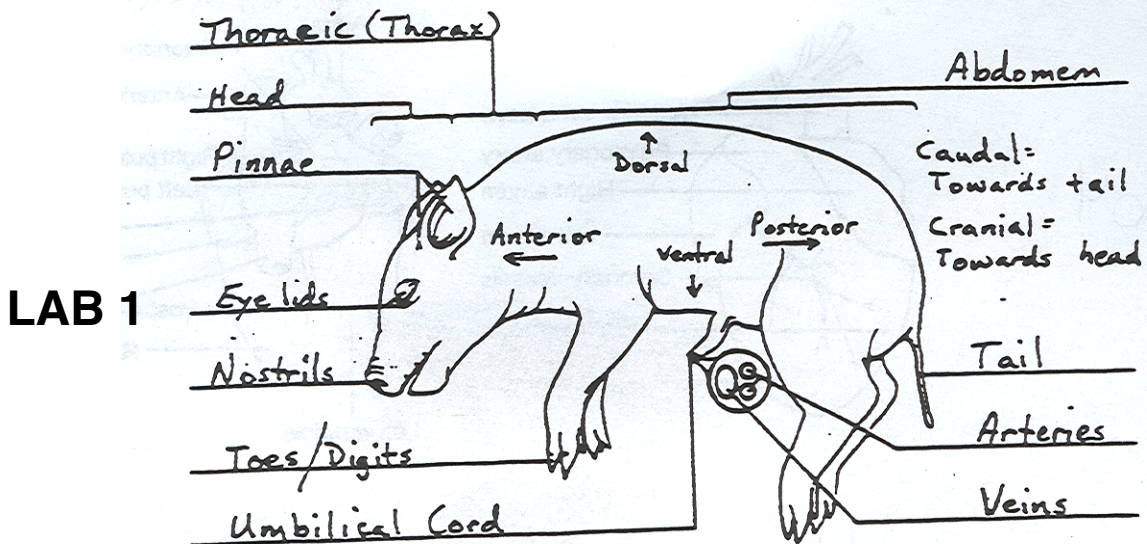 Thoracic (Thorax)
Head
Pinnae
Eyelids
Nostrils
Toes/Digits
Umbilical Cord
LAB 1
Dorsal
Anterior
Ventral
Posterior
Abdomem
Caudal=
Towards tail
Cranial=
Towards head
Tail
Arteries
Veins